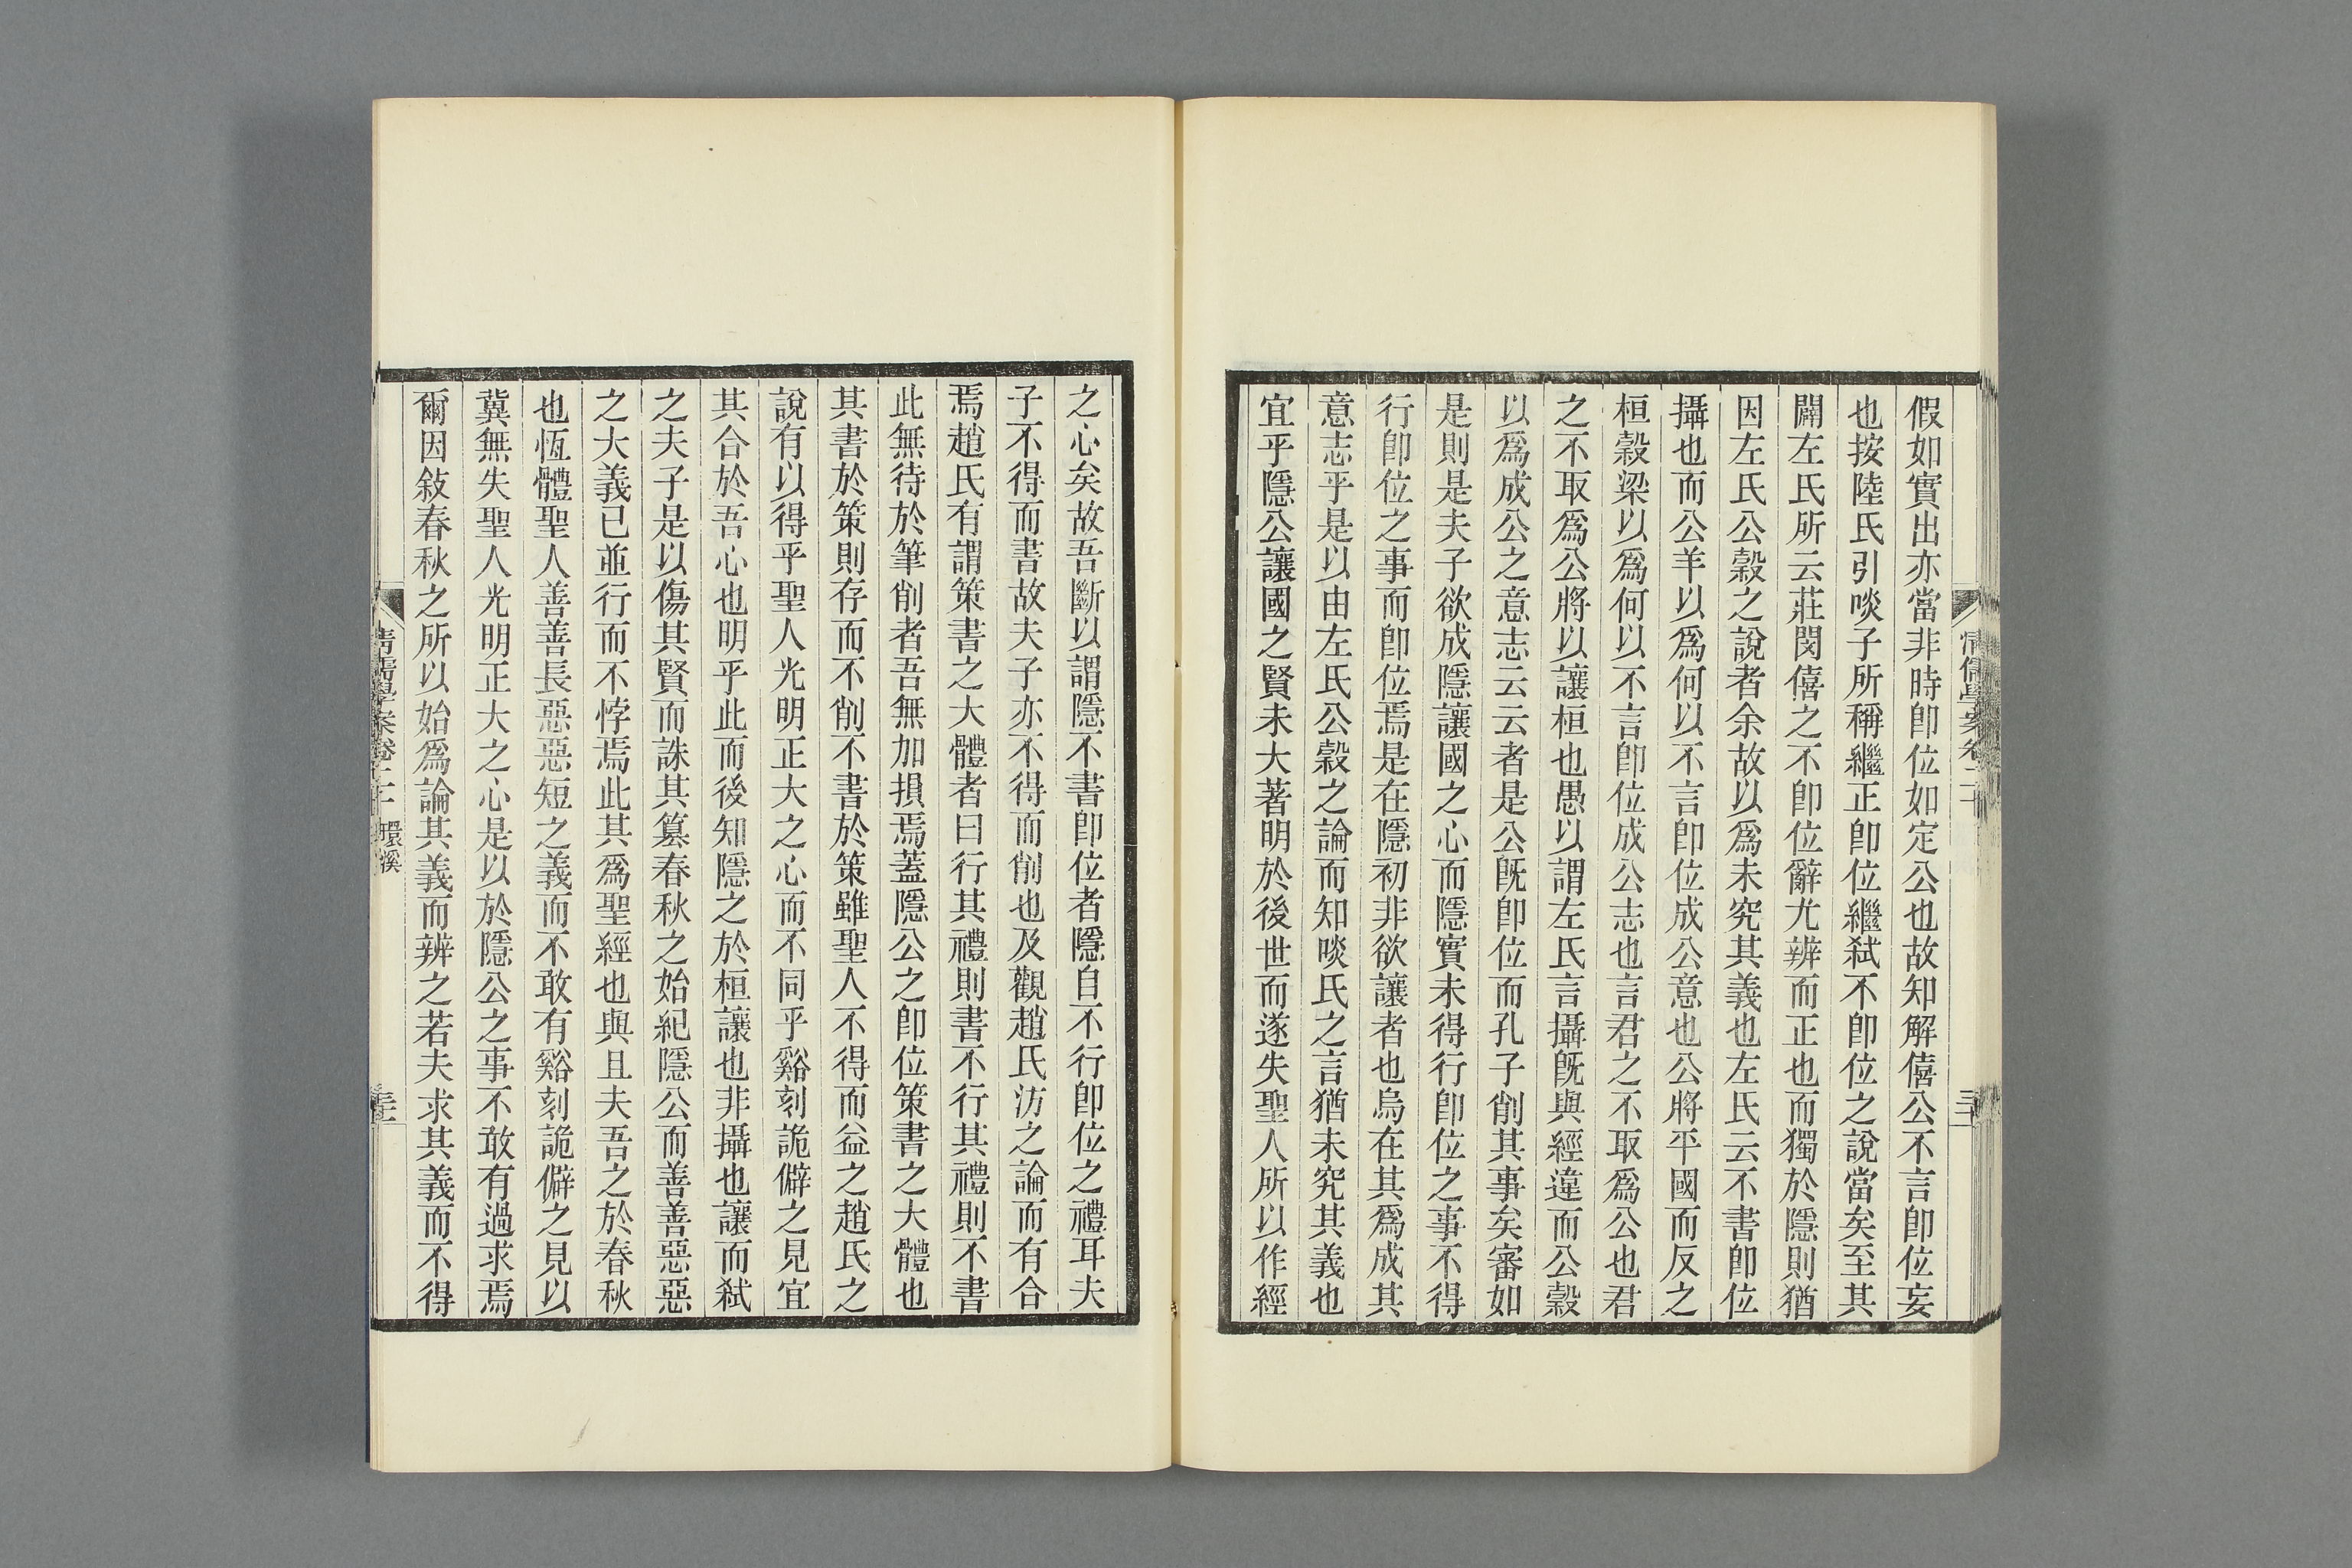 假如實出亦當非時卽位如定公也故知解僖公不言卽位妄
也按陸氏引啖子所稱繼正卽位繼弑不卽位之說當矣至其
闢左氏所云莊閔僖之不卽位辭尤辨而正也而獨於隱則猶
因左氏公穀之說者余故以爲未究其義也左氏云不書卽位
攝也而公羊以爲何以不言卽位成公意也公將平國而反之
桓穀梁以爲何以不言卽位成公志也言君之不取爲公也君
之不取爲公將以讓桓也愚以謂左氏言攝旣與經違而公穀
以爲成公之意志云云者是公旣卽位而孔子削其事矣審如
是則是夫子欲成隱讓國之心而隱實未得行卽位之事不得
行卽位之事而卽位焉是在隱初非欲讓者也烏在其爲成其
意志乎是以由左氏公穀之論而知啖氏之言猶未究其義也
宜乎隱公讓國之賢未大著明於後世而遂失聖人所以作經
之心矣故吾斷以謂隱不書卽位者隱自不行卽位之禮耳夫
子不得而書故夫子亦不得而削也及觀趙氏汸之論而有合
焉趙氏有謂策書之大體者曰行其禮則書不行其禮則不書
此無待於筆削者吾無加損焉蓋隱公之卽位策書之大體也
其書於策則存而不削不書於策雖聖人不得而益之趙氏之
說有以得乎聖人光明正大之心而不同乎谿刻詭僻之見宜
其合於吾心也明乎此而後知隱之於桓讓也非攝也讓而弑
之夫子是以傷其賢而誅其篡春秋之始紀隱公而善善惡惡
之大義已並行而不悖焉此其爲聖經也與且夫吾之於春秋
也恆體聖人善善長惡惡短之義而不敢有谿刻詭僻之見以
冀無失聖人光明正大之心是以於隱公之事不敢有過求焉
爾因敍春秋之所以始爲論其義而辨之若夫求其義而不得
清儒學案卷二十 環溪